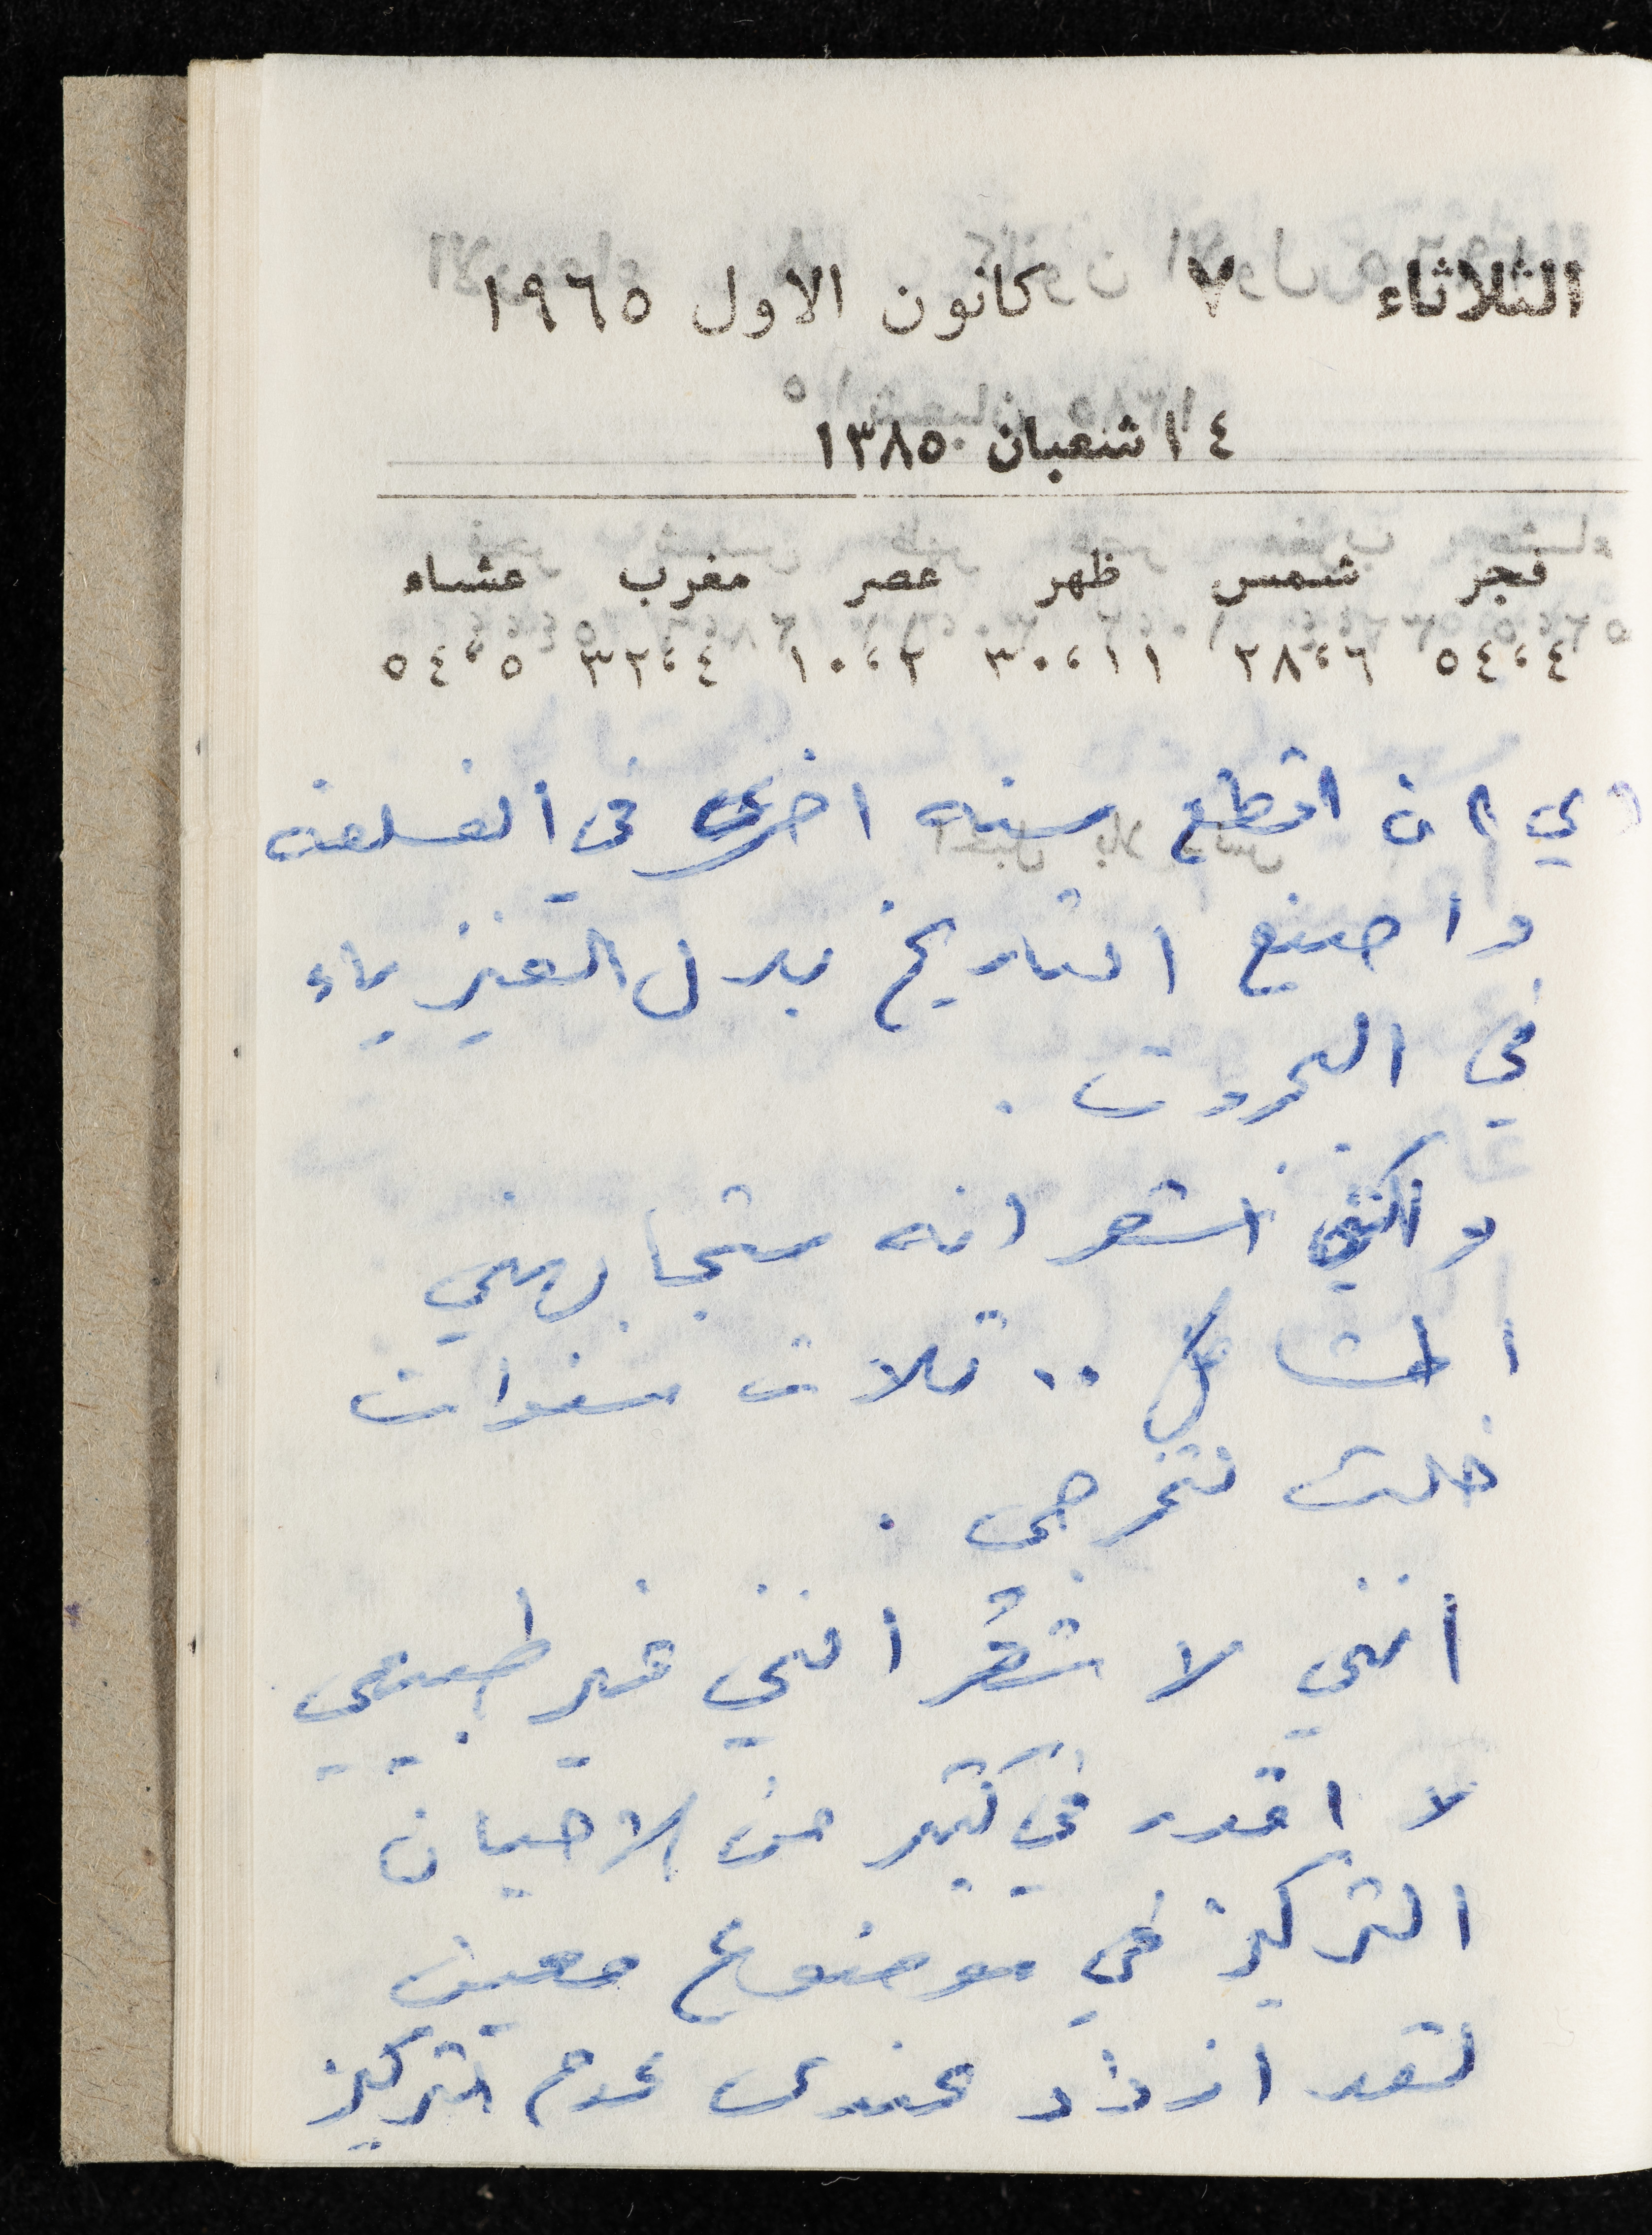 الثلاثاء ٧ كانون الاول ١٩٦٥
١٤ شعبان ١٣٨٥
فجر شمس ظهر عصر مغرب عشاء
٥٤،٤ ٢٨،٦ ٣٠،١١ ١٠،٢ ٣٢،٤ ٥٤،٥
اي ان اقطع سنه اخرى في الفلسفه
واضع التاريخ بدل الفيزياء
في
ولكني اشعر انه ستجابهني
المشاكل .. ثلاث سنوات
خلت لتخرجي .
انني لا شعُر انني غير طبيعي
لا اقدر في كثير من الاحيان
التركيز في موضوع معين
لقد ازداد عندي عدم التركيز